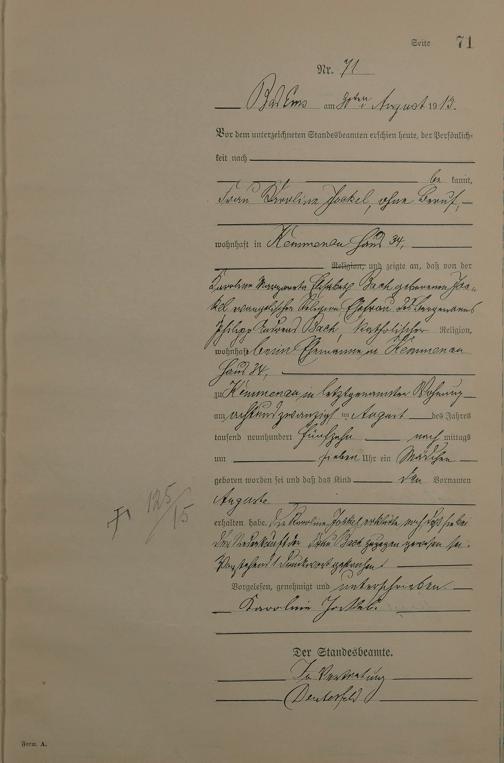 Seite 71
Nr. 71
Bad Ems am August 1913.
Vor dem unterzeichneten Standesbeamten erschien heute, der Persönlich-
keit nach
be kannt,
Frau Karoline Jockel, ohne Beruf,
wohnhaft in Kemmenau Haus 34,
Religion, und zeigte an, daß von der
Karoline Margareta Elisabeth Bach geborenen Joc-
kel evangelischer Religion Ehefrau des Bergmanns
Philipp Bach, katholischer Religion,
wohnhaft beim Ehemanne in Kemmenau
Haus 34,
zu Kemmenau in letztgenannter Wohnung
am achtundzwanzigsten August des Jahres
tausend neunhundert fünfzehn nach mittags
um sieben Uhr ein Mädchen
geboren worden sei und daß das Kind den Vornamen
Auguste
erhalten habe. Die Karoline Jockel erklärte, daß sie bei
der Niederkunft der Bach zugegen gewesen sei.
Vorstehend 1 Druckwort gestrichen.
Vorgelesen, genehmigt und unterschrieben
Karoline Jockel.
Der Standesbeamte.
In Vertretung
125/15
Form. A.